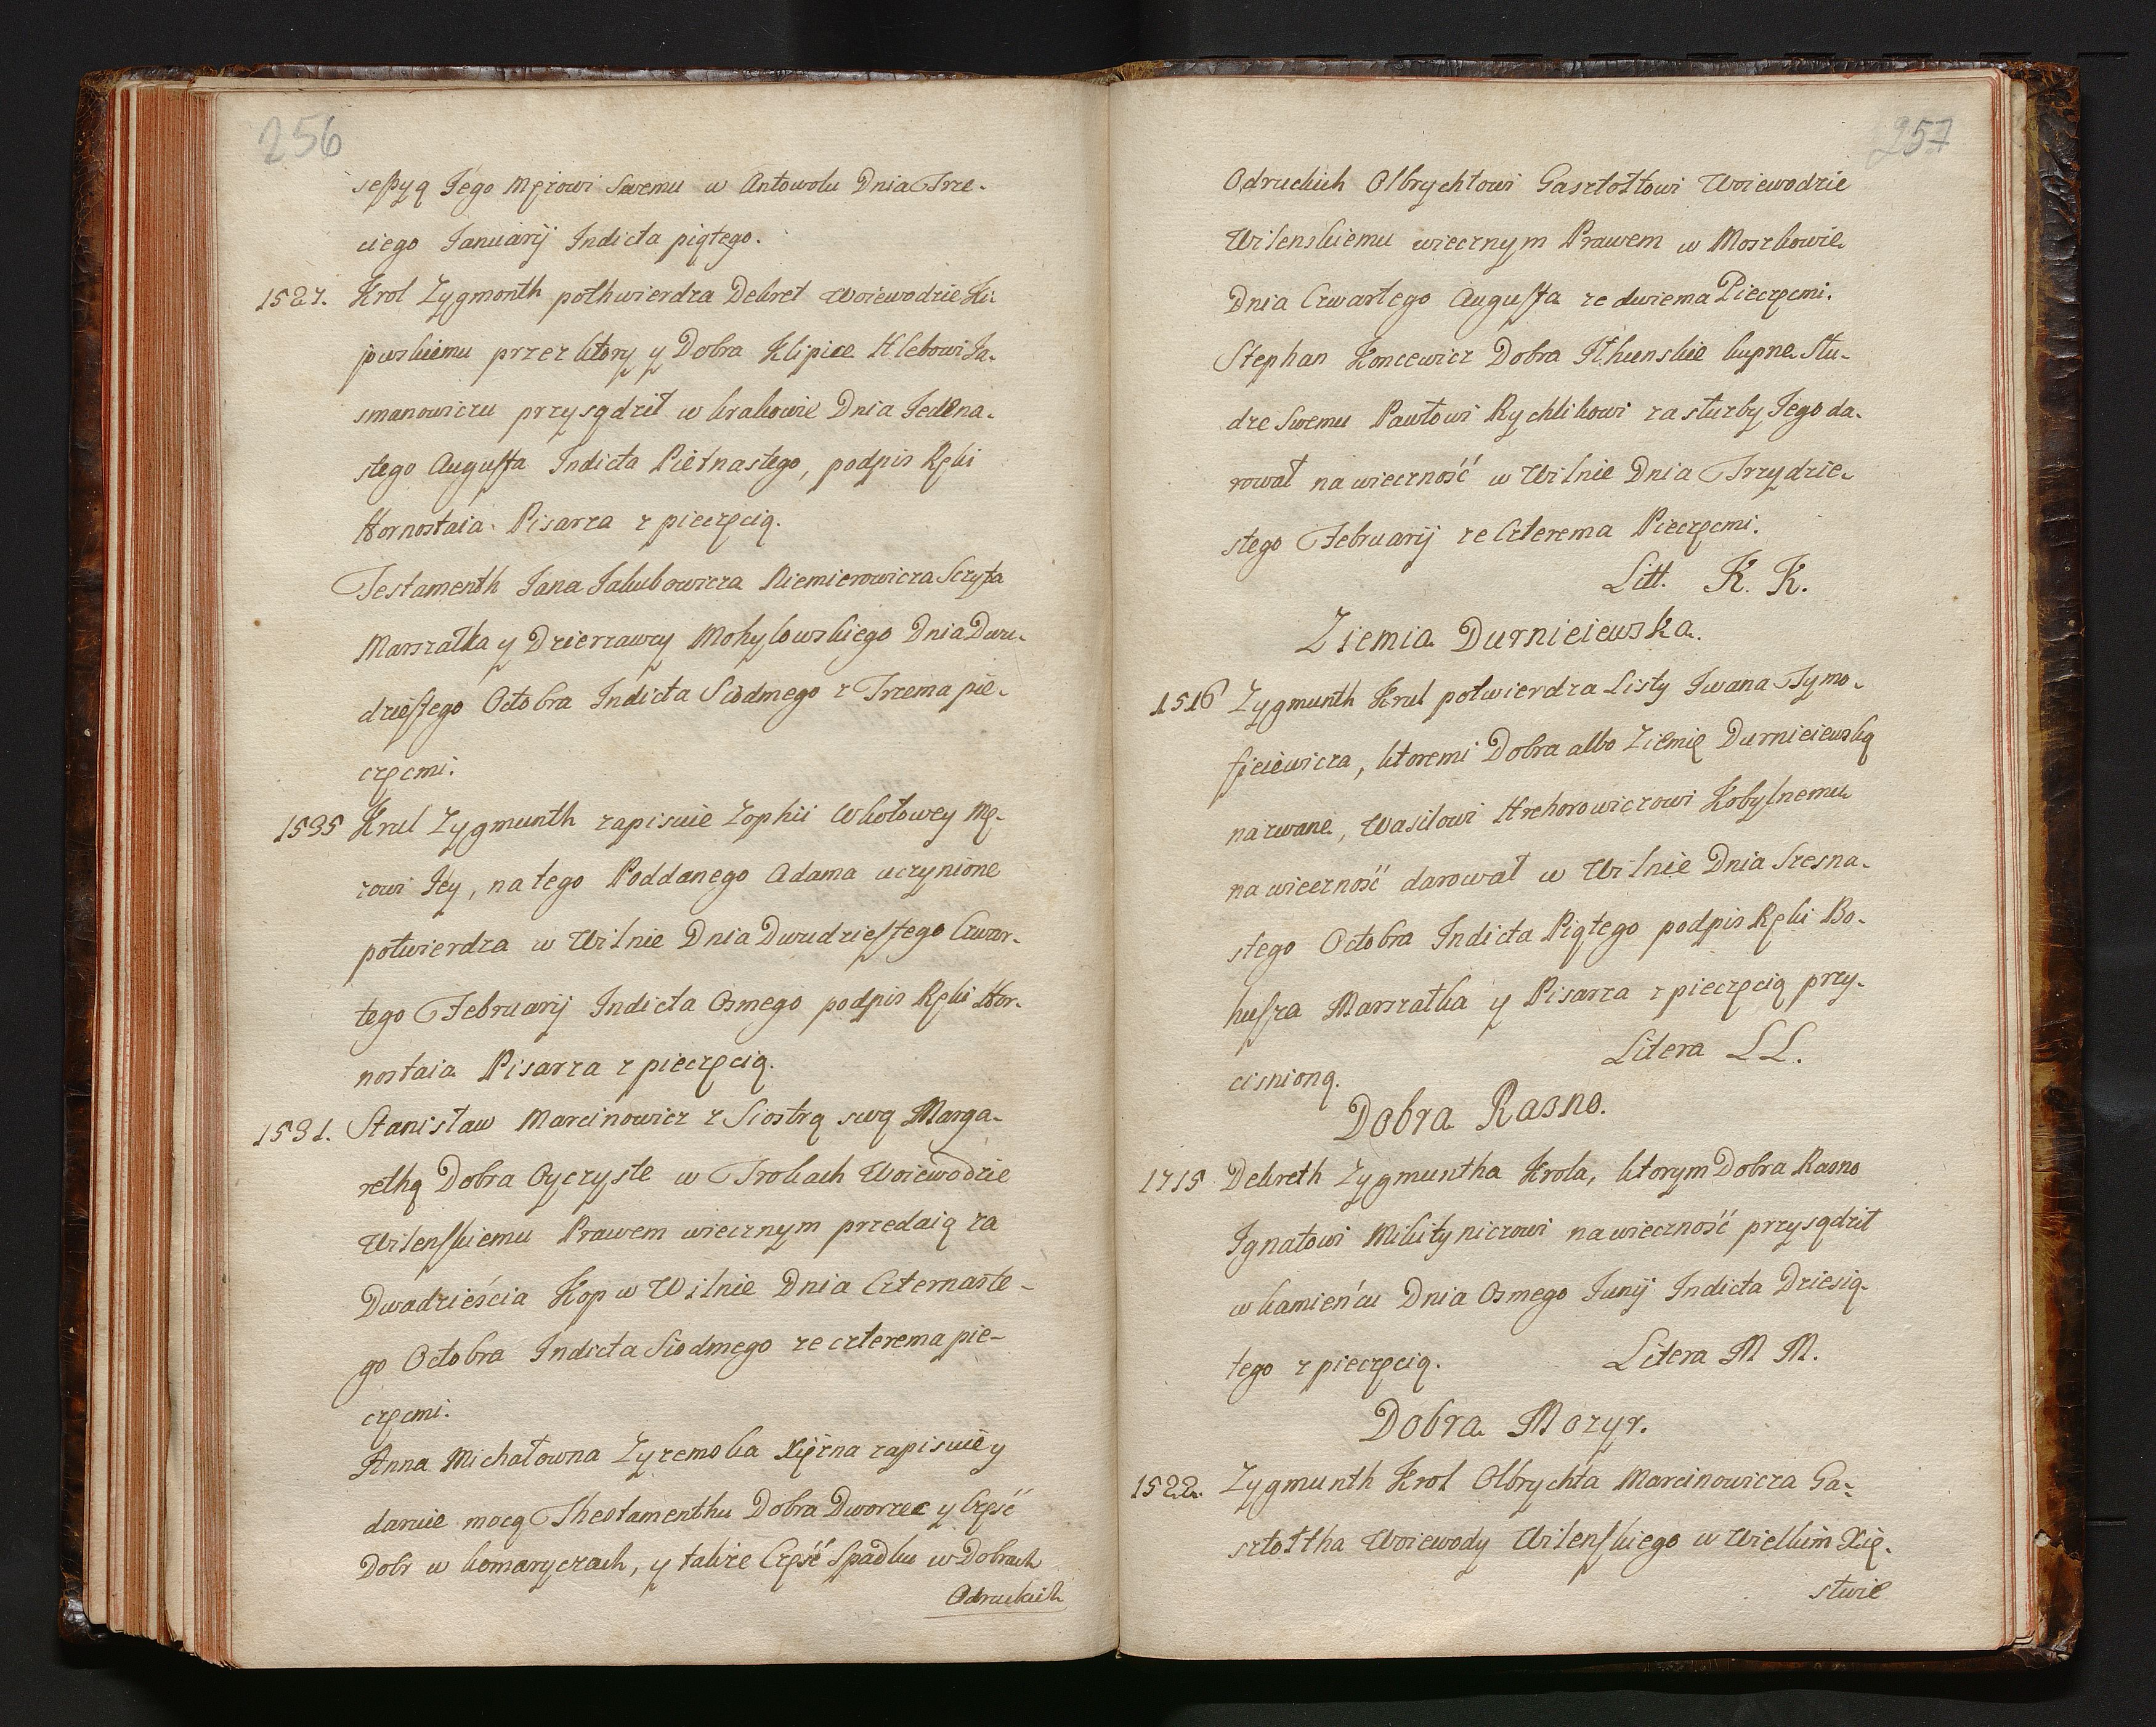 256
seßyą Jego Mężowi Swemu w Antowolu Dnia Trze-
ciego Januarij Indicta piątego.
1527. Krol Zygmonth pothwierdza Dekret Woiewodzie Ki-
jowskiemu przez ktory y Dobra Klipice Hlebowi Ja-
smanowiczu przysądził w krakowie Dnia Jedena-
stego Augusta Indicta Pietnastego, podpis Ręki
Hornostaia Pisarza z pieczęcią.
Testamenth Jana Jakubowicza Niemierowicza Sczyta
Marszałka y Dzierzawcy Mohylowskiego Dnia Dwu-
dziestego Octobra Indicta Siodmego z Trzema pie-
częcmi.
1535 Krul Zygmunth zapisuie Zophii Wkołowey Mę-
zowi Jey, na tego Poddanego Adama uczynione
potwierdza w Wilnie Dnia Dwudziestego Czwar-
tego Februarij Indicta Osmego podpis Ręki Hor-
nostaia Pisarza z pieczęcią.
1531. Stanisław Marcinowicz z Siostrą swą Marga-
rethą Dobra Oyczyste w Trokach Woiewodzie
Wilenskiemu Prawem wiecznym przedaią za
Dwadzieścia Kop w Wilnie Dnia Czternaste-
go Octobra Indicta Siodmego ze czterema pie-
częcmi.
Anna Michałowna Zyzemska Xiężna zapisuie y
daruie mocą Thestamenthu Dobra Dworzec y Część
Dobr w komaryczach, y takze Część Spadku w Dobrach
Odruckich
257
Odruckich Olbrychtowi Gasztołtowi Woiewodzie
Wilenskiemu wiecznym Prawem w Moszkowie
Dnia Czwartego Augusta ze dwiema Pieczęcmi.
Stephan Koncewicz Dobra Ithunskie kupne Słu-
dze Swemu Pawłowi Rychlikowi za służby Jego da-
rował na wieczność w Wilnie Dnia Trzydzie-
stego Februarij ze Czterema Pieczęcmi.
Litt. K. K.
Ziemia Durnieiewska.
1516 Zygmunth Krul potwierdza Listy Iwana Tymo-
fieiewicza, ktoremi Dobra albo Ziemię Durnieiewską
nazwane, Wasilowi Hrehorowiczowi Kobylnemu
na wieczność darował w Wilnie Dnia Szesna-
stego Octobra Indicta Piątego podpis Ręki Bo-
husza Marszałka y Pisarza z pieczęcią przy-
cisnioną.
Litera L L.
Dobra Rasno.
1715 Dekreth Zygmuntha Krola, ktorym Dobra Rasno
Ignatowi Mikityniczowi na wieczność przysądził
w kamieńcu Dnia Osmego Junij Indicta Dziesią-
tego z pieczęcią. Litera M M.
Dobra Mozyr.
1522. Zygmunth Krol Olbrychta Marcinowicza Ga-
sztołtha Woiewody Wilenskiego w Wielkim Xię-
stwie